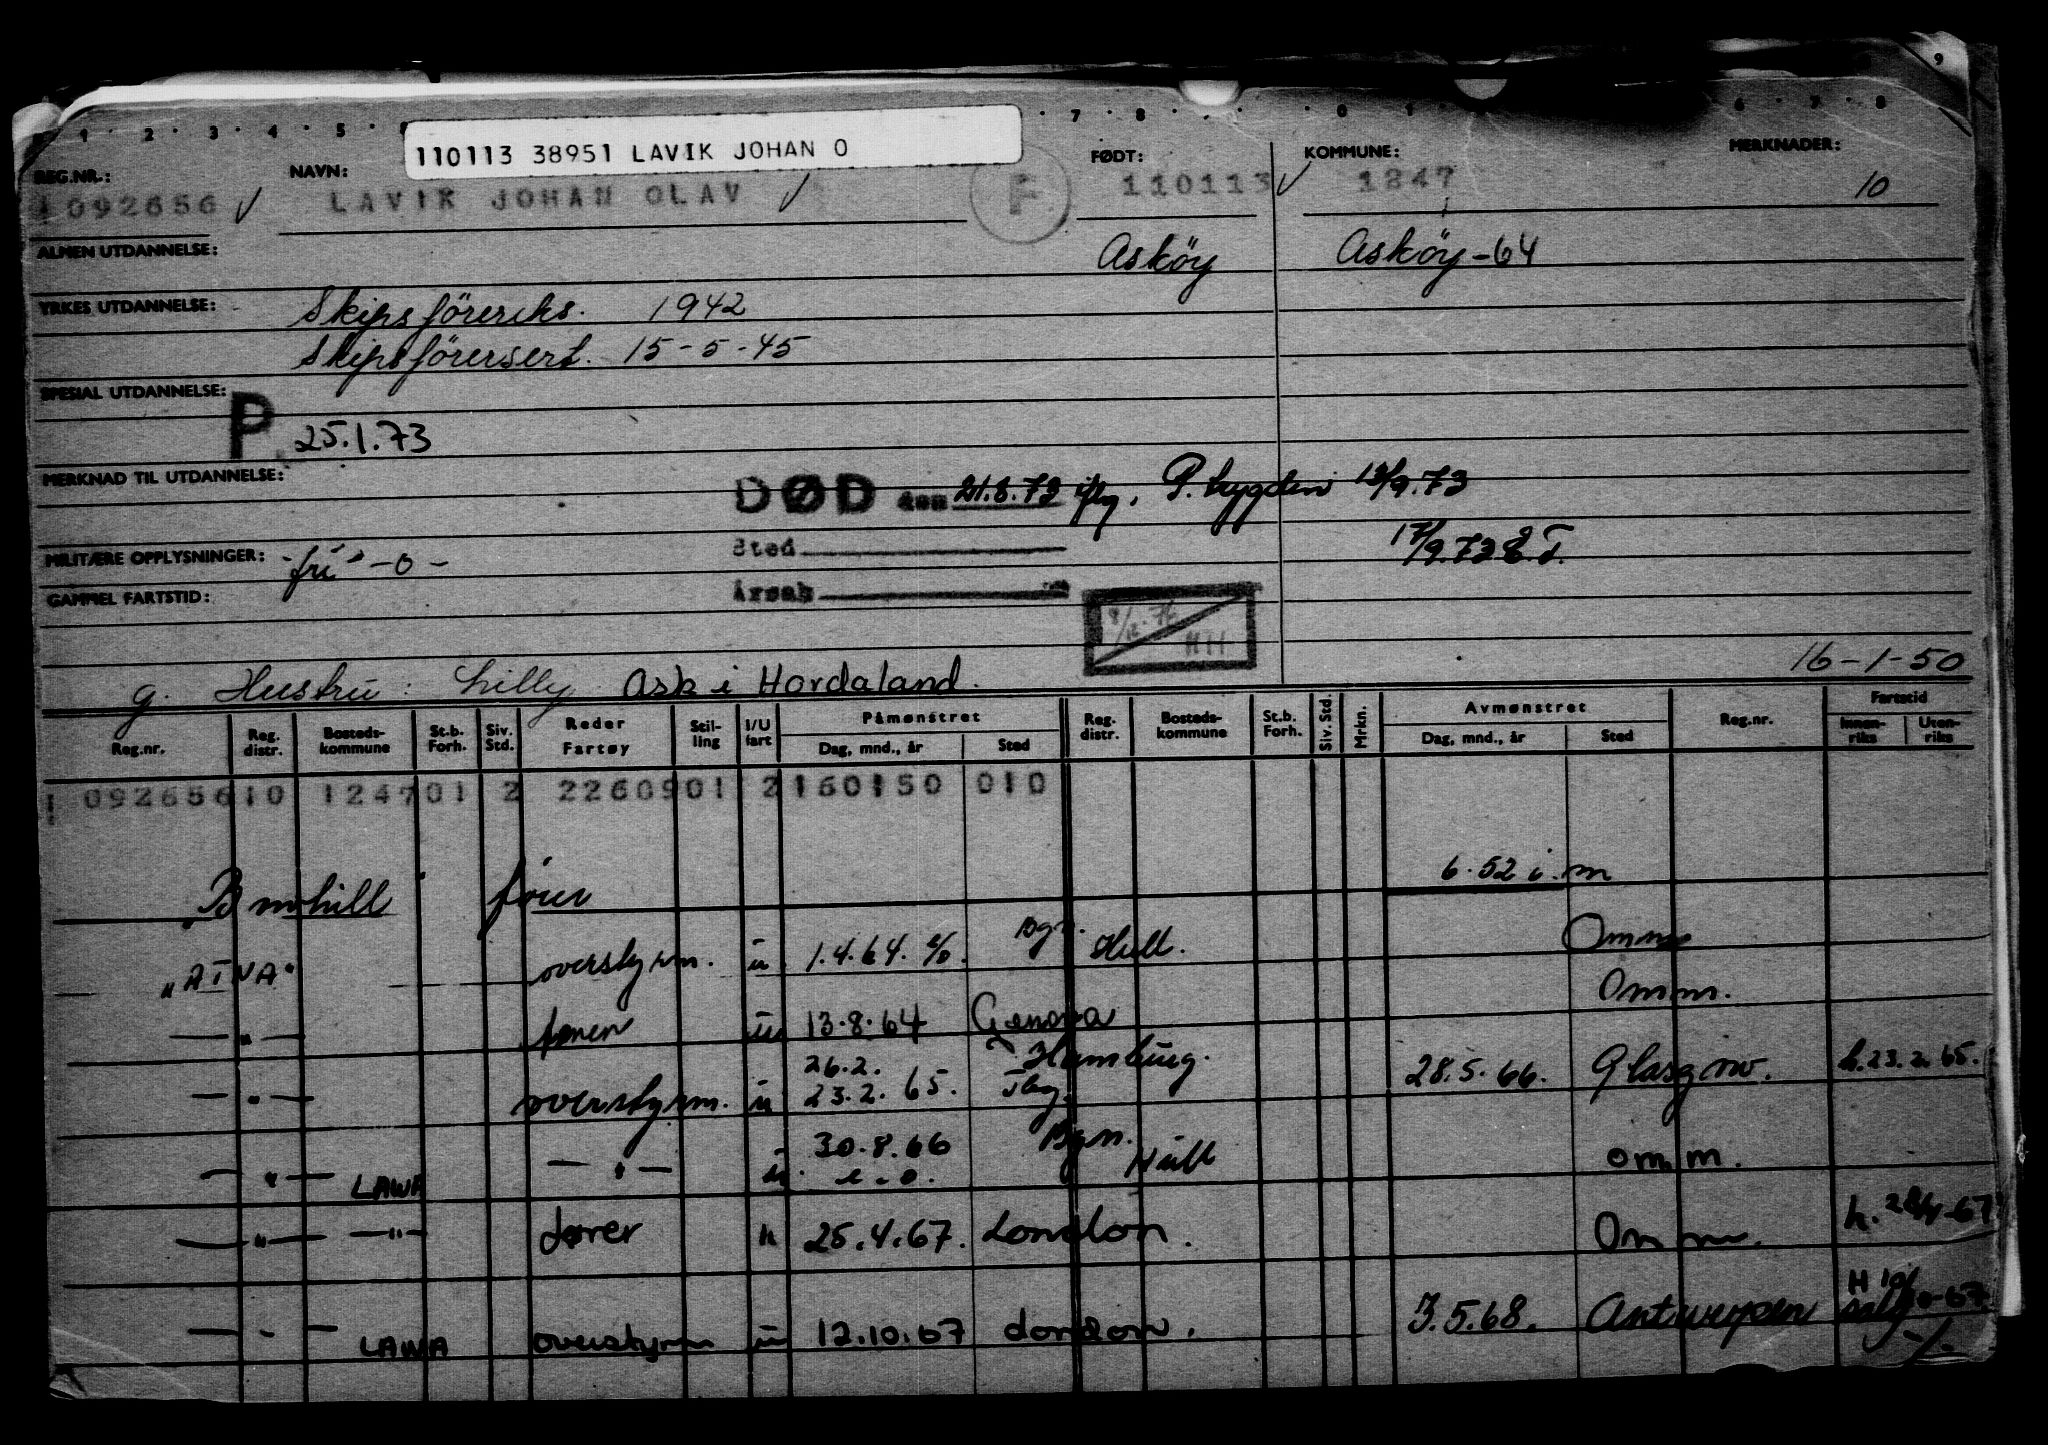 110113 38951 LAVIK JOHAN O
REG.NR.: NAVN: FØDT: KOMMUNE: MERKNADER:
1092656 LAVIK JOHAN OLAV F 110113 1247 10
ALMEN UTDANNELSE: Asköy Asköy-64
YRKES UTDANNELSE: Skipsförereks. 1942
Skipsförersert. 15-5-45
SPESIAL UTDANNELSE:
P. 25.1.73
MERKNAD TIL UTDANNELSE:
DØD den 21.8.73 iflg. P. trygden 13/9.73
Sted
17/9.73
MILITÆRE OPPLYSNINGER: "fri" -0-
GAMMEL FARTSTID: Årsak
HH
16-1-50
g. Hustru: Lilly Ask i Hordaland.
Reg.nr. Reg. distr. Bosteds-kommune St.b. Forh. Siv. Std. Reder Fartøy Stil-ling I/U fart Påmønstret Dag, mnd., år Sted Reg. distr. Bosteds-kommune St.b. Forh. Siv. Std. Mrkn. Avmønstret Dag, mnd., år Sted Reg.nr. Fartstid Innen-riks Uten-riks
1092656 10 1247 01 2 22609 01 2 160150 010
6.52 i.m
fører
"ATNA" overstyrm. u 1.4.64. e/o. Bgn. Hull. Omm
— " — fører u 13.8.64 Genova Omm.
— " — overstyrm. u 26.2. 23.2.65. Hamburg. Tbg. 28.5.66. Glasgow. h.23.2.65.
— " — LAWA — " — u. 30.8.66 e.o. Bgn. Hull omm.
— " — — " — fører u 25.4.67. London. Omm. h. 28/4-67
— " — LAWA overstyrm u 12.10.67 London. 3.5.68. Antwerpen